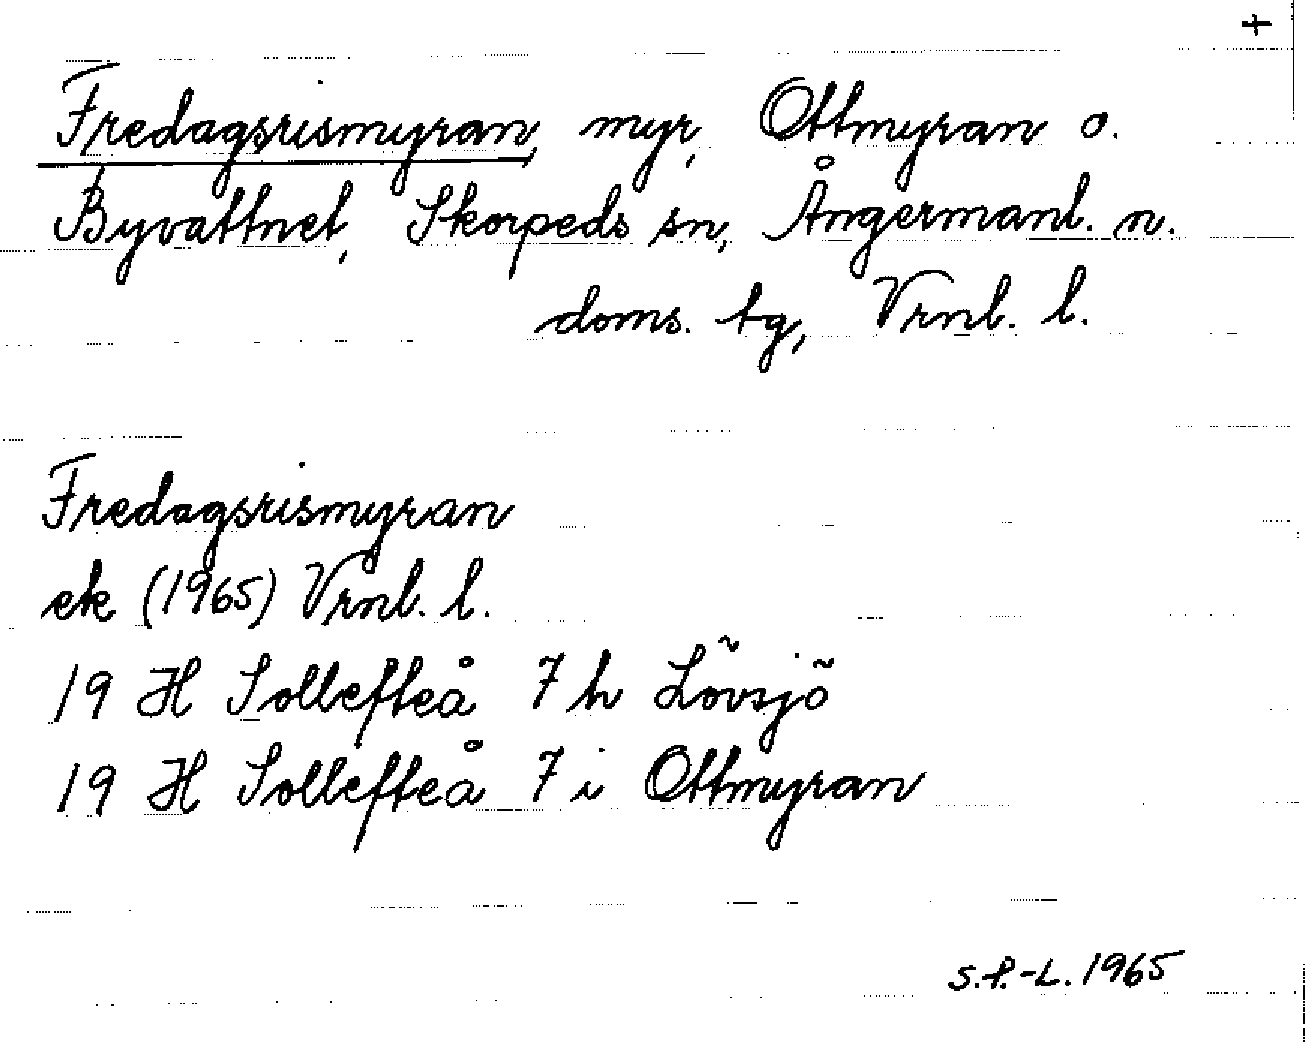 +
Fredagsrismyran, myr, Ottmyran o.
Byvattnet, Skorpeds sn, Ångermanl. n.
doms. tg, Vrnl. l.
Fredagsrismyran
ek (1965) Vrnl. l.
19 H Sollefteå 7 h Lövsjö
19 H Sollefteå 7 i Ottmyran
S.P.-L. 1965